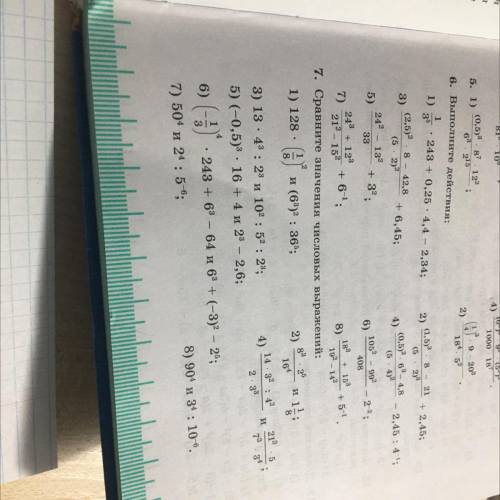 5. 1) (0,5)³ · 8⁷ · 12³ / 6³ · 2¹⁵ ;
2) (1/4)³ · 9 · 20³ / 18⁴ · 5³ .
6. Выполните действия:
1) 1/3⁵ · 243 + 0,25 · 4,4 − 2,34;
2) (1,5)³ · 8 − 21 / (5 · 2)² + 2,45;
3) (2,5)² · 8 − 42,8 / (5 · 2)² + 6,45;
4) (0,5)³ · 6³ − 4,8 / (5 · 4)² − 2,45 : 4⁻¹;
5) 24² − 13² / 33 + 3²;
6) 105² − 99² / 408 − 2⁻²;
7) 24³ + 12³ / 21² − 15² + 6⁻¹;
8) 18³ + 15³ / 19² − 14² + 5⁻¹.
7. Сравните значения числовых выражений:
1) 128 · (1/8)² и (6³)² : 36³;
2) 8³ · 2⁵ / 16⁴ и 1 1/8;
3) 13 · 4³ : 2³ и 10² : 5² : 2³;
4) 14 · 3² : 4² / 2 · 3³ и 21³ · 5 / 7³ · 3⁴ ;
5) (−0,5)³ · 16 + 4 и 2³ − 2,6;
6) (−1/3)⁴ · 243 + 6³ − 64 и 6³ + (−3)² − 2⁵;
7) 50⁴ и 2⁴ : 5⁻⁶;
8) 90⁴ и 3⁴ : 10⁻⁶.